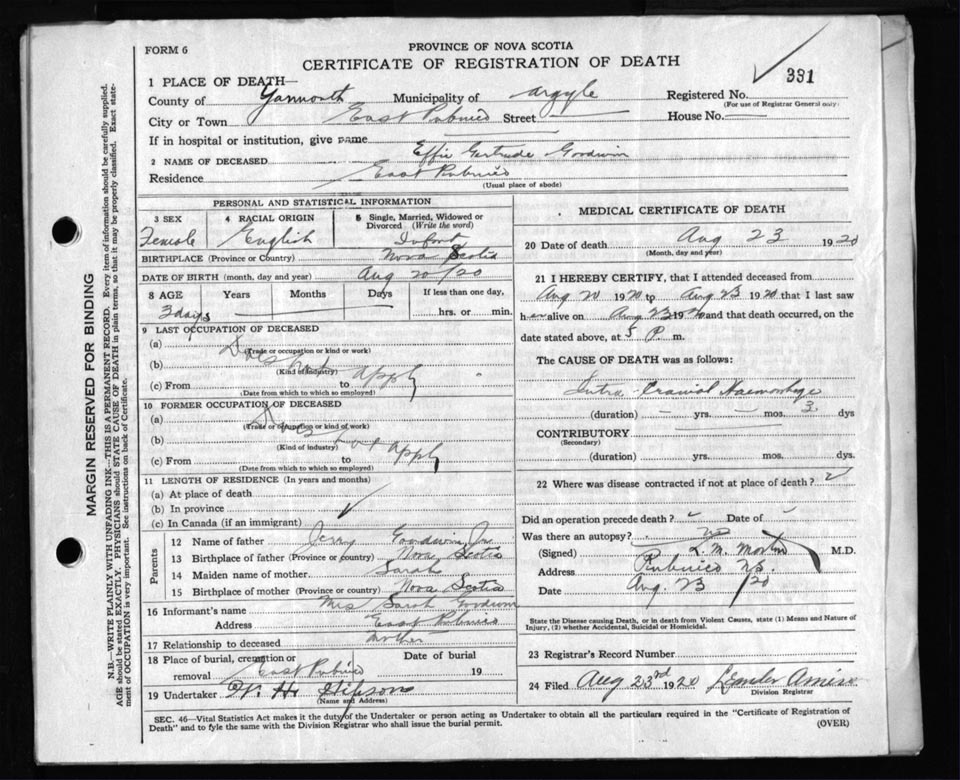 FORM 6
PROVINCE OF NOVA SCOTIA
CERTIFICATE OF REGISTRATION OF DEATH
331
1 PLACE OF DEATH—
County of Yarmouth Municipality of Argyle Registered No.
(For use of Registrar General only)
City or Town East Pubnico Street House No.
If in hospital or institution, give name
2 NAME OF DECEASED Effie Gertrude Goodwin
Residence East Pubnico
(Usual place of abode)
PERSONAL AND STATISTICAL INFORMATION
3 SEX 4 RACIAL ORIGIN 5 Single, Married, Widowed or Divorced (Write the word)
Female English Infant
BIRTHPLACE (Province or Country) Nova Scotia
DATE OF BIRTH (month, day and year) Aug 20/20
8 AGE Years Months Days If less than one day,
3 days hrs. or min.
9 LAST OCCUPATION OF DECEASED
(a) Does
(Trade or occupation or kind of work)
(b) not apply
(Kind of industry)
(c) From to
(Date from which to which so employed)
10 FORMER OCCUPATION OF DECEASED
(a) Does
(Trade or occupation or kind of work)
(b) not apply
(Kind of industry)
(c) From to
(Date from which to which so employed)
11 LENGTH OF RESIDENCE (In years and months)
(a) At place of death
(b) In province
(c) In Canada (if an immigrant)
Parents
12 Name of father Jerry Goodwin Jr
13 Birthplace of father (Province or country) Nova Scotia
14 Maiden name of mother Sarah
15 Birthplace of mother (Province or country) Nova Scotia
16 Informant's name Mrs Sarah Goodwin
Address East Pubnico
17 Relationship to deceased Mother
18 Place of burial, cremation or removal East Pubnico Date of burial 19
19 Undertaker H.
(Name and Address)
MEDICAL CERTIFICATE OF DEATH
20 Date of death Aug 23 1920
(Month, day and year)
21 I HEREBY CERTIFY, that I attended deceased from
Aug 20 1920 to Aug 23 1920 that I last saw
her alive on Aug 23 1920 and that death occurred, on the
date stated above, at 5 P. m.
The CAUSE OF DEATH was as follows:
Intra-Cranial Haemorhage
(duration) — yrs. — mos. 3 dys
CONTRIBUTORY
(Secondary)
(duration) yrs. mos. dys.
22 Where was disease contracted if not at place of death?
Did an operation precede death? Date of
Was there an autopsy? no
(Signed) L. M. M.D.
Address Pubnico NS.
Date Aug. 23/20
State the Disease causing Death, or in death from Violent Causes, state (1) Means and Nature of
Injury, (2) whether Accidental, Suicidal or Homicidal.
23 Registrar's Record Number
24 Filed Aug 23rd 1920
Division Registrar
SEC. 46—Vital Statistics Act makes it the duty of the Undertaker or person acting as Undertaker to obtain all the particulars required in the "Certificate of Registration of
Death" and to fyle the same with the Division Registrar who shall issue the burial permit.
(OVER)
MARGIN RESERVED FOR BINDING
N.B.—WRITE PLAINLY WITH UNFADING INK—THIS IS A PERMANENT RECORD. Every item of information should be carefully supplied.
AGE should be stated EXACTLY. PHYSICIANS should STATE CAUSE OF DEATH in plain terms, so that it may be properly classified. Exact statement of OCCUPATION is very important. See instructions on back of Certificate.